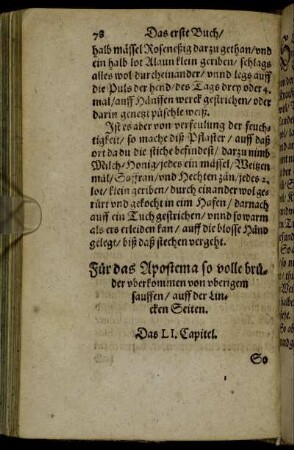 78 Das erste Buch/
halb mässel Roseneßig darzu gethan/vnd
ein halb lot Alaun klein geriben / schlags
alles wol durcheinander/vnnd legs auff
die Puls der hend/des Tags drey oder 4.
mal/auff Hänffen werck gestrichen/oder
darin genetzt päschle weiß.
Ist es aber von verfeulung der feuch-
tigkeit/ so mache diß Pflaster / auff daß
ort da du die stiche befindest/ darzu nimb
Milch/Honig/jedes ein mässel/ Weitzen
mal/Saffran/vnd Hechten zän/jedes 2.
lot/klein geriben/ durch einander wol ge-
rürt vnd gekocht in eim Hafen / darnach
auff ein Tuch gestrichen/vnnd so warm
als ers erleiden kan/ auff die blosse Händ
gelegt/ biß daß stechen vergeht.
Für das Apostema so volle brü-
der vberkommen von vberigem
sauffen / auff der Lin-
cken Seiten.
Das LI. Capitel.
So